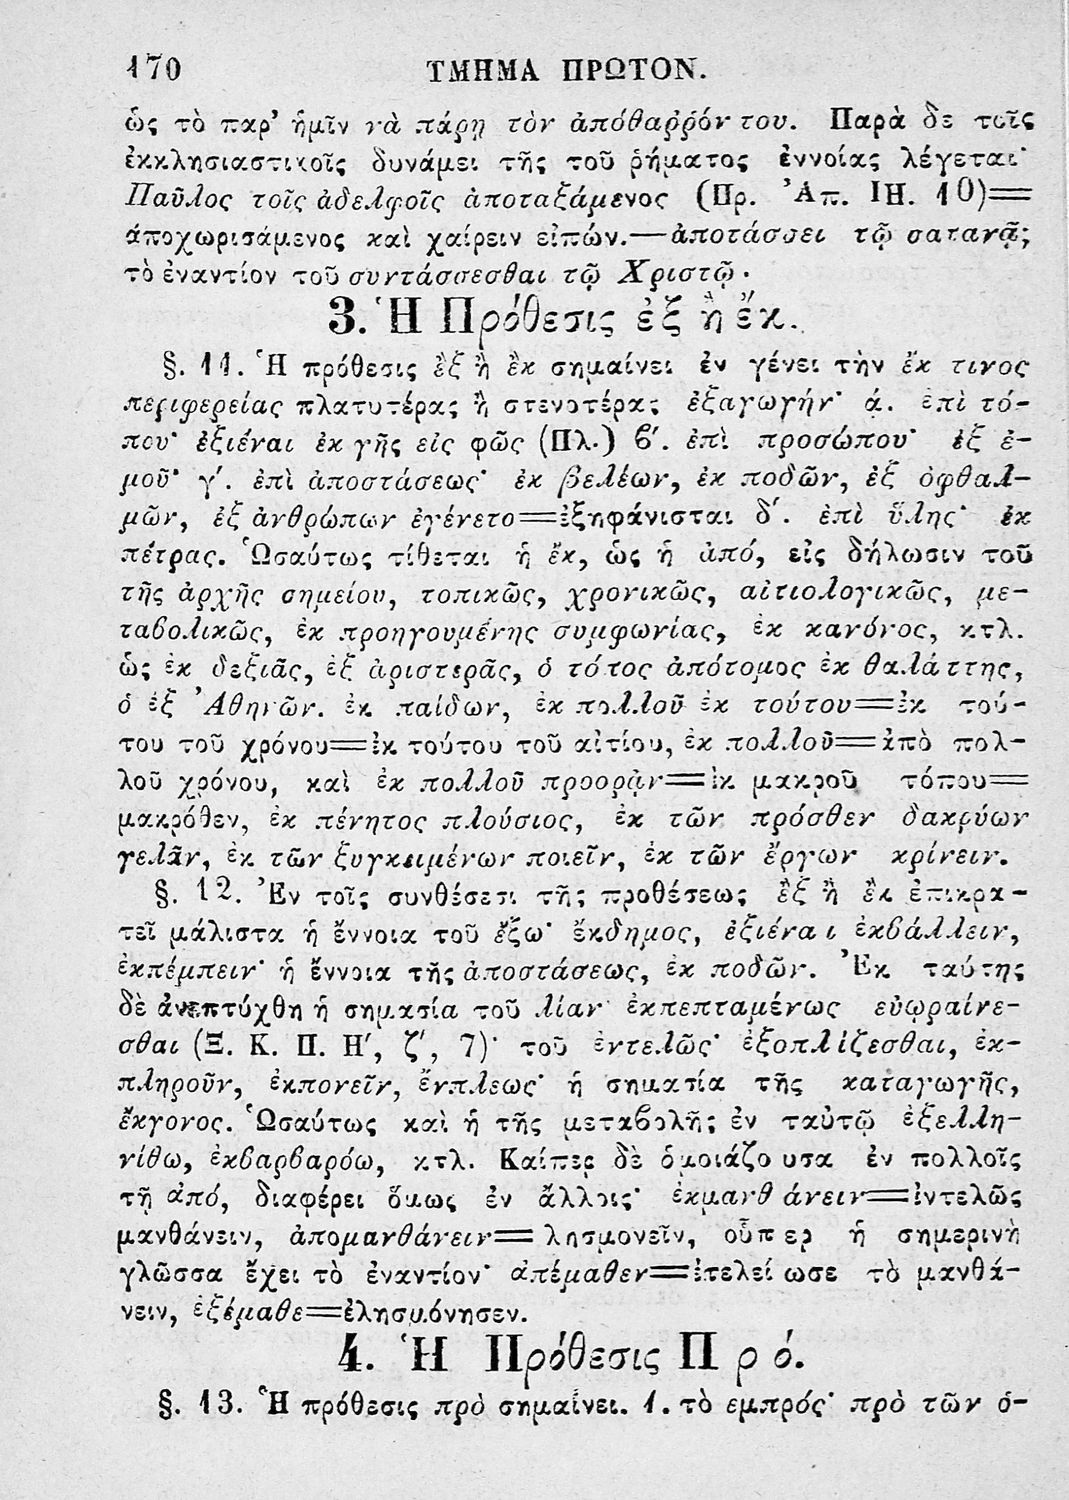 170 ΤΜΗΜΑ ΠΡΩΤΟΝ.
ὡς τὸ παρ' ἡμῖν νὰ πάρῃ τὸν ἀπόθαῤῥόν του. Παρὰ δε τοῖς
ἐκκλησιαστικοῖς δυνάμει τῆς τοῦ ῥήματος ἐννοίας λέγεται·
Παῦλος τοῖς ἀδελφοῖς ἀποταξάμενος (Πρ. Ἀπ. ΙΗ. 10)=
ἀποχωρισάμενος καὶ χαίρειν εἰπών.—ἀποτάσσει τῷ σατανᾷ;
τὸ ἐναντίον τοῦ συντάσσεσθαι τῷ Χριστῷ.
3. Ἡ Πρόθεσις ἐξ ἢ ἐκ.
§. 11. Ἡ πρόθεσις ἒξ ἢ ἒκ σημαίνει ἐν γένει τὴν ἔκ τινος
περιφερείας πλατυτέρας ἢ στενοτέρας ἐξαγωγήν· ά. ἐπὶ τό-
που· ἐξιέναι ἐκ γῆς εἰς φῶς (Πλ.) ϐ'. ἐπὶ προσώπου· ἐξ ἐ-
μοῦ· γ'. ἐπὶ ἀποστάσεως· ἐκ βελέων, ἐκ ποδῶν, ἐξ ὀφθαλ-
μῶν, ἐξ ἀνθρώπων ἐγένετο=ἐξηφάνισται δ'. ἐπὶ ὕλης· ἐκ
πέτρας. Ὡσαύτως τίθεται ἡ ἔκ, ὡς ἡ ἀπό, εἰς δήλωσιν τοῦ
τῆς ἀρχῆς σημείου, τοπικῶς, χρονικῶς, αἰτιολογικῶς, με-
ταϐολικῶς, ἐκ προηγουμένης συμφωνίας, ἐκ κανόνος, κτλ.
ὡς ἐκ δεξιᾶς, ἐξ ἀριστερᾶς, ὁ τότος ἀπότομος ἐκ θαλάττης,
ὁ ἐξ Ἀθηνῶν. ἐκ παίδων, ἐκ πολλοῦ ἐκ τούτου=ἐκ τού-
του τοῦ χρόνου=ἐκ τούτου τοῦ αἰτίου, ἐκ πολλοῦ=ἀπὸ πολ-
λοῦ χρόνου, καὶ ἐκ πολλοῦ προορᾷν=ἐκ μακροῦ τόπου=
μακρόθεν, ἐκ πένητος πλούσιος, ἐκ τῶν πρόσθεν δακρύων
γελᾶν, ἐκ τῶν ξυγκειμένων ποιεῖν, ἐκ τῶν ἔργων κρίνειν.
§. 12. Ἐν τοῖς συνθέσεσι τῆς προθέσεως ἒξ ἢ ἒκ ἐπικρα-
τεῖ μάλιστα ἡ ἔννοια τοῦ ἔξω· ἔκδημος, ἐξιέναι ἐκβάλλειν,
ἐκπέμπειν· ἡ ἔννοια τῆς ἀποστάσεως, ἐκ ποδῶν. Ἐκ ταύτης
δὲ ἀνεπτύχθη ἡ σημασία τοῦ λίαν· ἐκπεπταμένως εὐωραίνε-
σθαι (Ξ. Κ. Π. Η', ζ', 7)· τοῦ ἐντελῶς· ἐξοπλίζεσθαι, ἐκ-
πληροῦν, ἐκπονεῖν, ἔνπλεως· ἡ σημασία τῆς καταγωγῆς,
ἔκγονος. Ὡσαύτως καὶ ἡ τῆς μεταϐολῆς ἐν ταὐτῷ ἐξελλη-
νίθω, ἐκβαρβαρόω, κτλ. Καίπερ δὲ ὁμοιάζουσα ἐν πολλοῖς
τῇ ἀπό, διαφέρει ὅμως ἐν ἄλλοις· ἐκμανθάνειν=ἐντελῶς
μανθάνειν, ἀπομανθάνειν=λησμονεῖν, οὗπερ ἡ σημερινὴ
γλῶσσα ἔχει τὸ ἐναντίον· ἀπέμαθεν=ἐτελείωσε τὸ μανθά-
νειν, ἐξέμαθε=ἐλησμόνησεν.
4. Ἡ Πρόθεσις Πρό.
§. 13. Ἡ πρόθεσις πρὸ σημαίνει. 1. τὸ εμπρός· πρὸ τῶν ὀ-